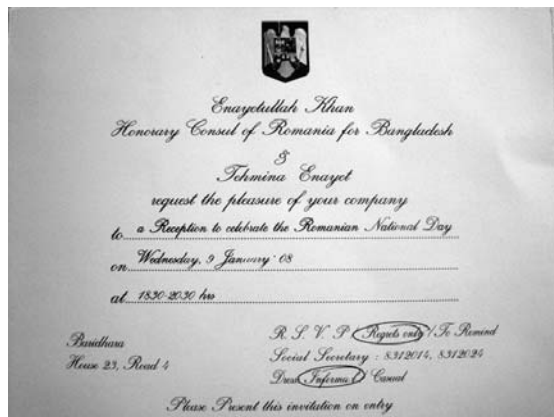 Enayetullah Khan
Honorary Consul of Romania for Bangladesh
&
Tehmina Enayet
request the pleasure of your company
to a Reception to celebrate the Romanian National Day
on Wednesday, 9 January' 08
at 1830-2030 hrs
Baridhara
House 23, Road 4
R. S. V. P Regrets only / To Remind
Social Secretary : 8312014, 8312024
Dress Informal / Casual
Please Present this invitation on entry